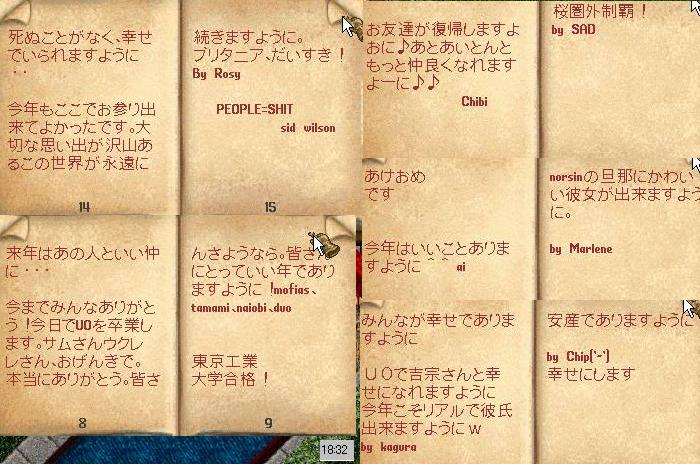 死ぬことがなく、幸せ
でいられますように
・・
今年もここでお参り出
来てよかったです。大
切な思い出が沢山あ
るこの世界が永遠に
14
続きますように。
ブリタニア、だいすき！
By Rosy
PEOPLE=SHIT
sid wilson
15
来年はあの人といい仲
に・・・
今までみんなありがと
う！今日でUOを卒業し
ます。サムさんウクレ
レさん、おげんきで。
本当にありがとう。皆さ
8
んさようなら。皆さん
にとっていい年であり
ますように！mofias、
tamami、naiobi、duo
東京工業
大学合格！
9
18:32
お友達が復帰しますよ
おに♪あとあいとんと
もっと仲良くなれます
よーに♪♪
Chibi
桜圏外制覇！
by SAD
あけおめ
です
今年はいいことありま
すように＾＾ ai
norsinの旦那にかわい
い彼女が出来ますよう
に。
by Marlene
みんなが幸せでありま
すように
ＵＯで吉宗さんと幸
せになれますように
今年こそリアルで彼氏
出来ますようにｗ
by kagura
安産でありますように
by Chip('-')
幸せにします